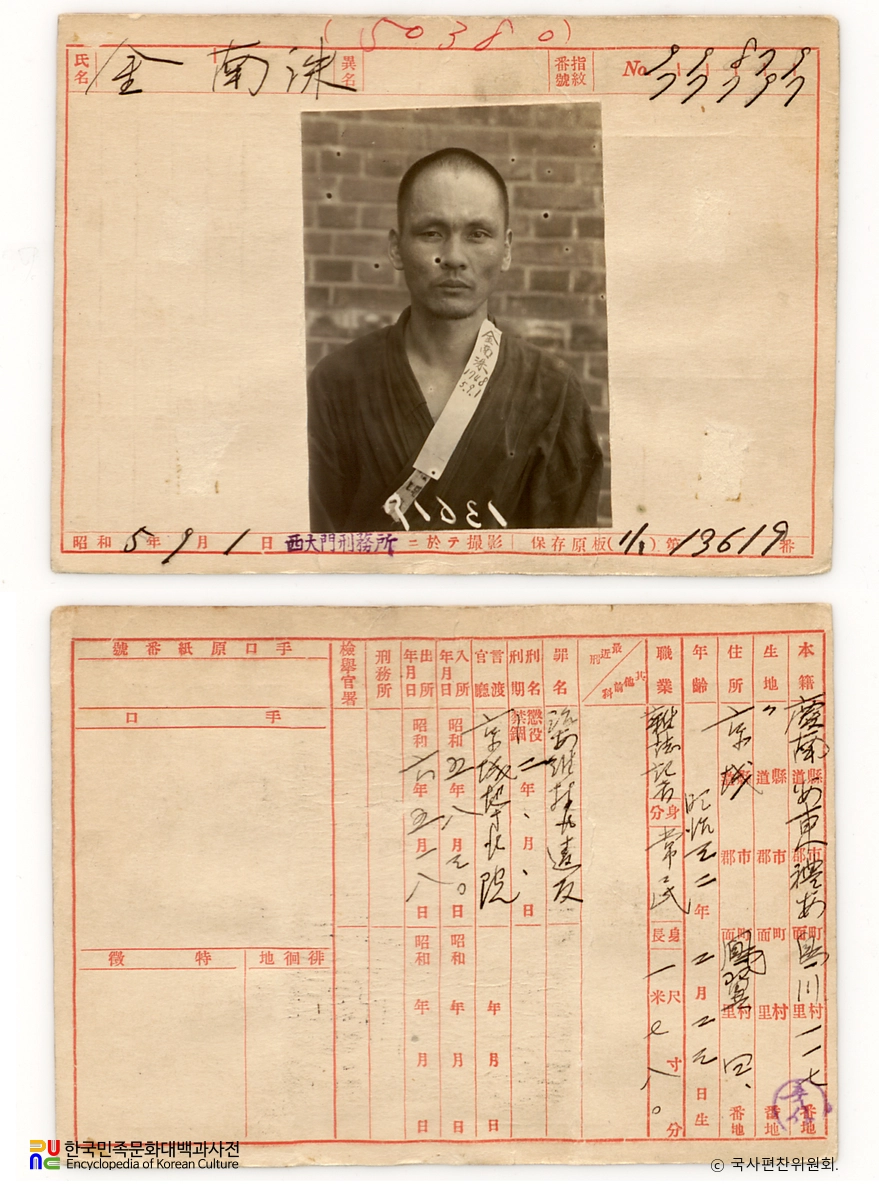 (50380)
氏名 金南洙 異名 指紋番號 No.
金南洙
1748
5.9.1
13619
昭和5年9月1日 西大門刑務所ニ於テ撮影 保存原版(1/1)第13619番
本籍 慶南 道縣 市郡 町面 村里 一一七 番地
生地 〃 道縣 市郡 町面 村里 番地
住所 京城 道縣 市郡 町面 鳳翼 村里 四、 番地
年齡 明治三二年二月二三日生
職業 雜誌記者 身分 常民 身長 一米七八〇 尺寸分
最近刑 其他前科
罪名 治安維持法違反
刑名刑期 懲役 禁錮 二年、月、日
言渡官廳 京城地方法院 年月日
入所年月日 昭和五年八月三〇日 昭和 年 月 日
出所年月日 昭和六年五月二八日 昭和 年 月 日
刑務所
檢擧官署
手口原紙番號
手口
徘徊地
特徵
한국민족문화대백과사전
Encyclopedia of Korean Culture
© 국사편찬위원회.